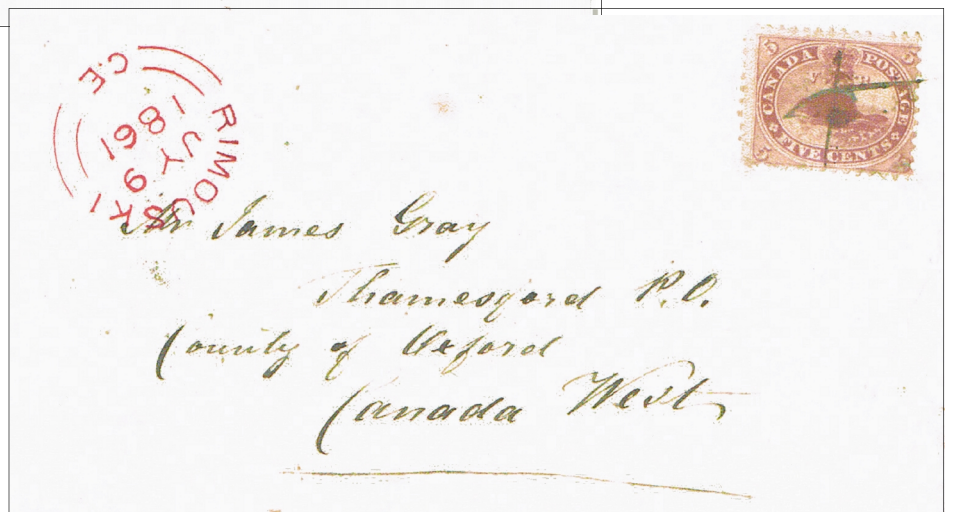 RIMOUSKI
C.E
JY 9
1861
5 5
CANADA POSTAGE
V R
FIVE CENTS
5 5
Mr James Gray
Thamesford P.O.
County of Oxford
Canada West